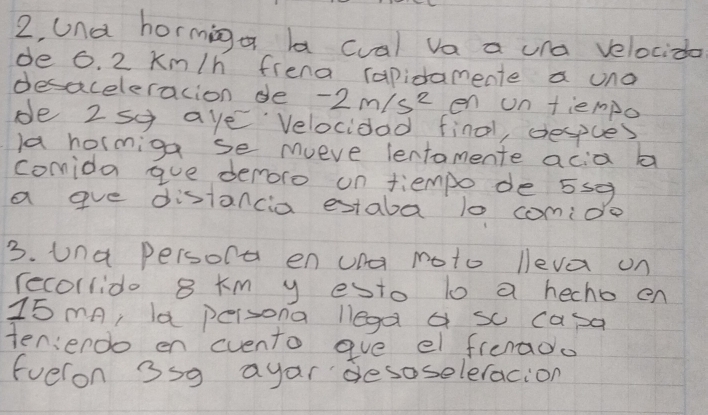 2. una hormiga la cual va a una velocida
de 6.2 Km/h frena rapidamente a una
desaceleracion de -2 m/s² en un tiempo
de 2 sg aye velocidad final, despues
la hormiga se mueve lentamente acia la
comida que demoro un tiempo de 5sg
a que distancia estaba la comida
3. Una persona en una moto lleva un
recorrido 8 Km y esto lo a hecho en
15 mn, la persona llega a su casa
teniendo en cuento que el frenado
fueron 3sg ayar desaseleracion